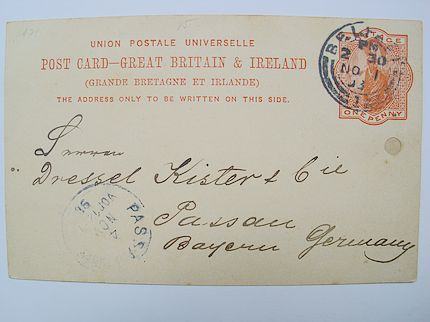 UNION POSTALE UNIVERSELLE
POST CARD—GREAT BRITAIN & IRELAND
(GRANDE BRETAGNE ET IRLANDE)
THE ADDRESS ONLY TO BE WRITTEN ON THIS SIDE.
BELFAST
PM
2 30
NO 1
POSTAGE
ONE PENNY
Herren
Dressel Kister & Cie
Passau
Bayern Germany
PASSAU
NOV